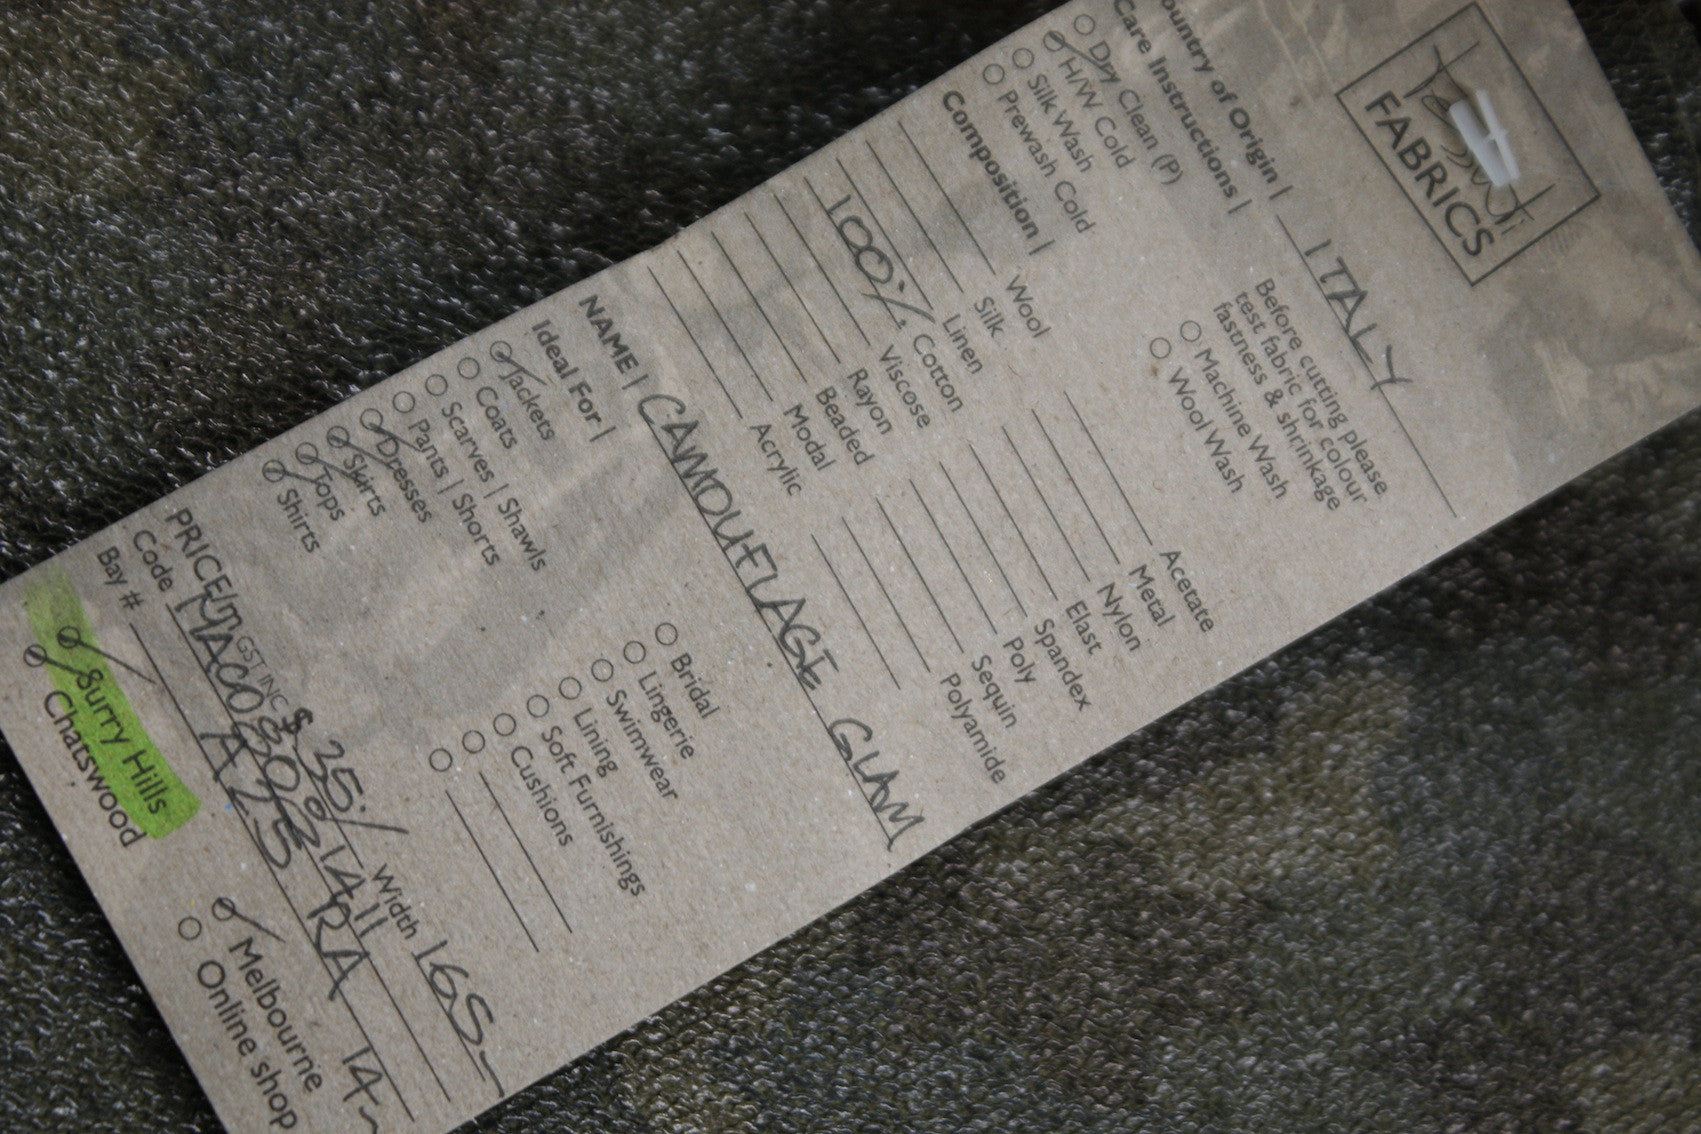 FABRICS
ountry of Origin | ITALY
Care Instructions |
Dry Clean (P)
H/W Cold
Silk Wash
Prewash Cold
Before cutting please
test fabric for colour
fastness & shrinkage
Machine Wash
Wool Wash
Composition |
Wool
Silk
Linen
100% Cotton
Viscose
Rayon
Beaded
Modal
Acrylic
Acetate
Metal
Nylon
Elast
Spandex
Poly
Sequin
Polyamide
NAME | CAMOUFLAGE GLAM
Ideal For |
Jackets
Coats
Scarves | Shawls
Pants | Shorts
Dresses
Skirts
Tops
Shirts
Bridal
Lingerie
Swimwear
Lining
Soft Furnishings
Cushions
PRICE/m GST INC $ 35 Width 165
Code
Bay # A 25 RA 14
Surry Hills
Chatswood
Melbourne
Online shop